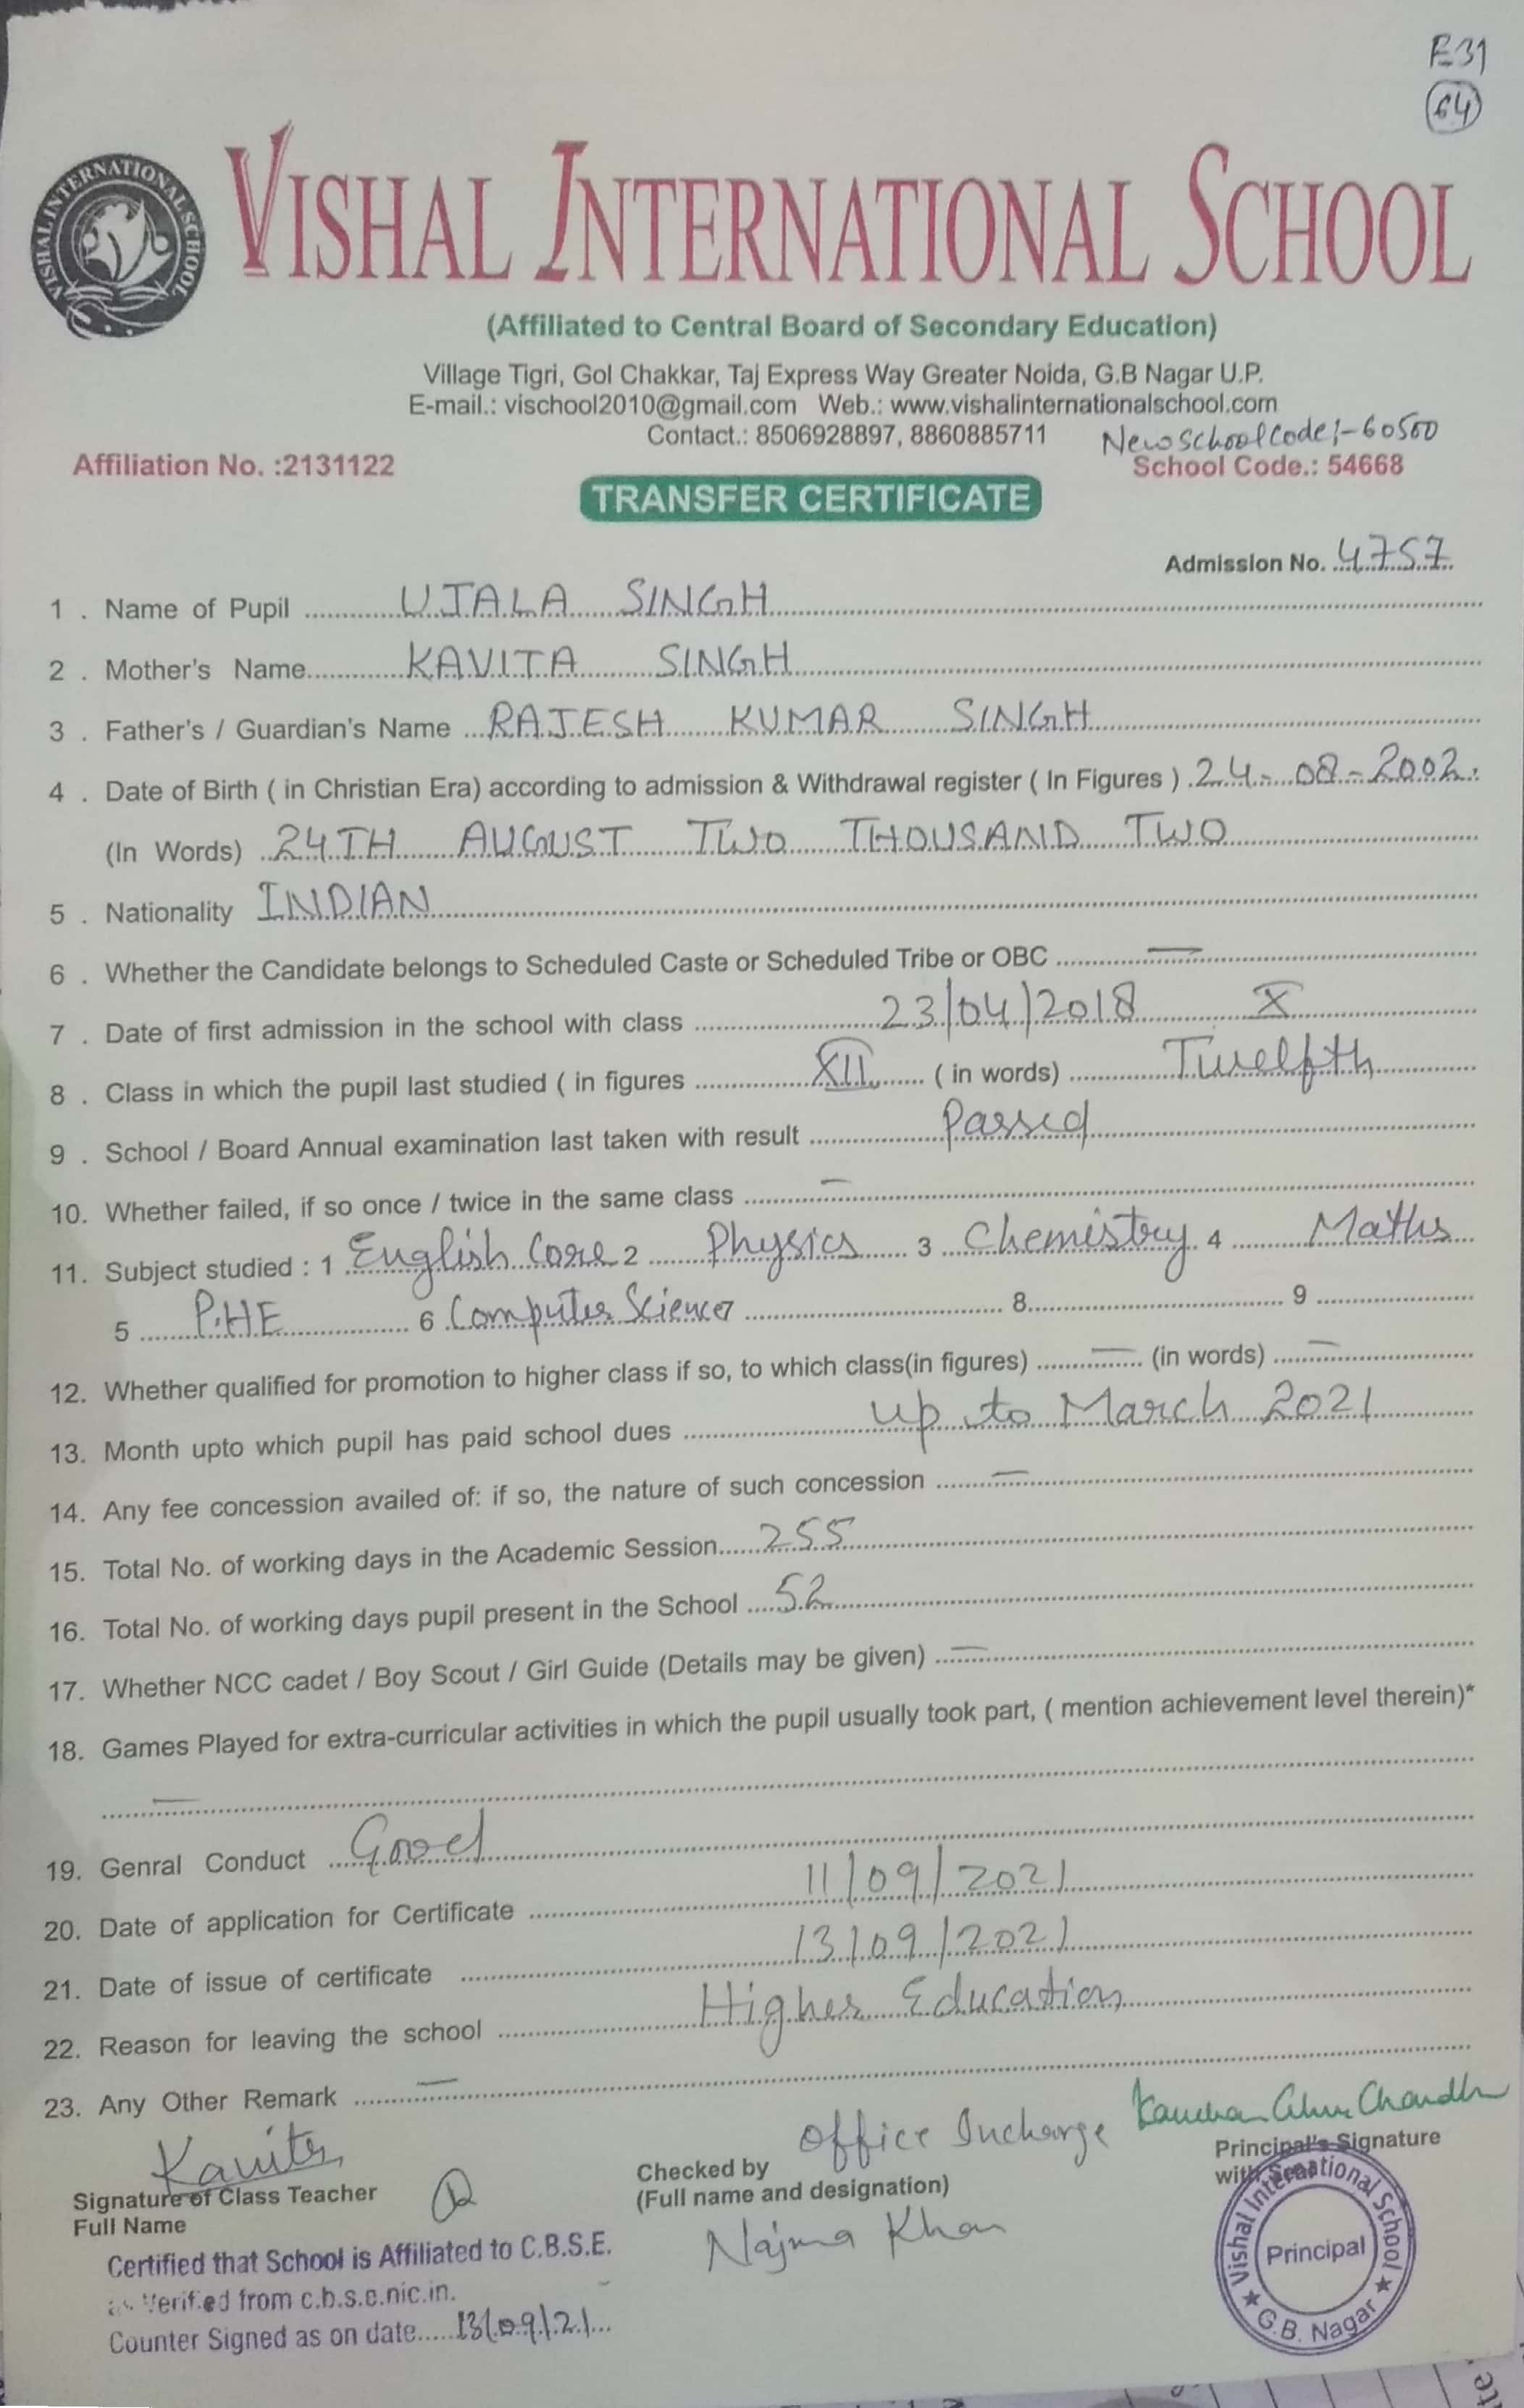 E31
64
VISHAL INTERNATIONAL SCHOOL
VISHAL INTERNATIONAL SCHOOL
(Affiliated to Central Board of Secondary Education)
Village Tigri, Gol Chakkar, Taj Express Way Greater Noida, G.B Nagar U.P.
E-mail.: vischool2010@gmail.com Web.: www.vishalinternationalschool.com
Contact.: 8506928897, 8860885711 New School Code:-60500
Affiliation No. :2131122 School Code.: 54668
TRANSFER CERTIFICATE
Admission No. 4757
1 . Name of Pupil UJALA SINGH
2 . Mother's Name KAVITA SINGH
3 . Father's / Guardian's Name RAJESH KUMAR SINGH
4 . Date of Birth ( in Christian Era) according to admission & Withdrawal register ( In Figures ) 24-08-2002.
(In Words) 24TH AUGUST TWO THOUSAND TWO
5 . Nationality INDIAN
6 . Whether the Candidate belongs to Scheduled Caste or Scheduled Tribe or OBC —
7 . Date of first admission in the school with class 23/04/2018 X
8 . Class in which the pupil last studied ( in figures XII ( in words) Twelfth
9 . School / Board Annual examination last taken with result Passed
10. Whether failed, if so once / twice in the same class —
11. Subject studied : 1 English Core 2 Physics 3 Chemistry 4 Maths
5 P.HE 6 Computer Science 7 8 9
12. Whether qualified for promotion to higher class if so, to which class(in figures) — (in words) —
13. Month upto which pupil has paid school dues up to March 2021
14. Any fee concession availed of: if so, the nature of such concession —
15. Total No. of working days in the Academic Session 255
16. Total No. of working days pupil present in the School 52
17. Whether NCC cadet / Boy Scout / Girl Guide (Details may be given) —
18. Games Played for extra-curricular activities in which the pupil usually took part, ( mention achievement level therein)*
—
19. Genral Conduct Good
20. Date of application for Certificate 11/09/2021
21. Date of issue of certificate 13/09/2021
22. Reason for leaving the school Higher Education
23. Any Other Remark —
Kavita
Signature of Class Teacher
Full Name
Office Incharge
Checked by
(Full name and designation)
Najma Khan
Principal's Signature
with
Vishal International School
Principal
G.B. Nagar
Certified that School is Affiliated to C.B.S.E.
as Verified from c.b.s.e.nic.in.
Counter Signed as on date 13/09/21